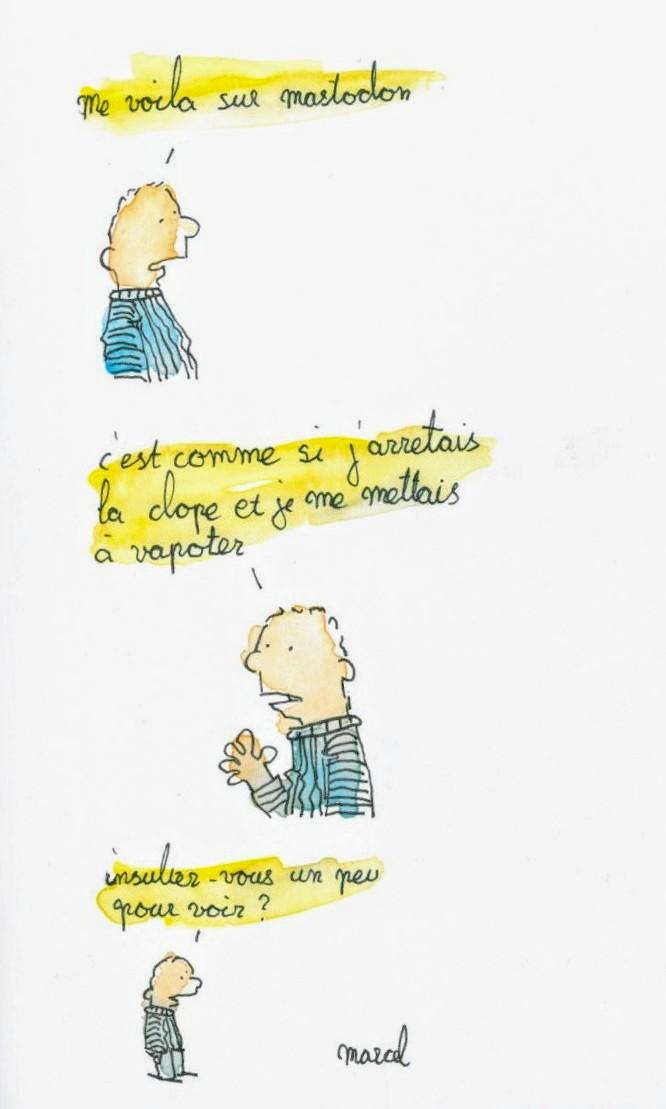 me voila sur mastodon
c'est comme si j'arretais
la clope et je me mettais
à vapoter
insulter-vous un peu
pour voir ?
marcel